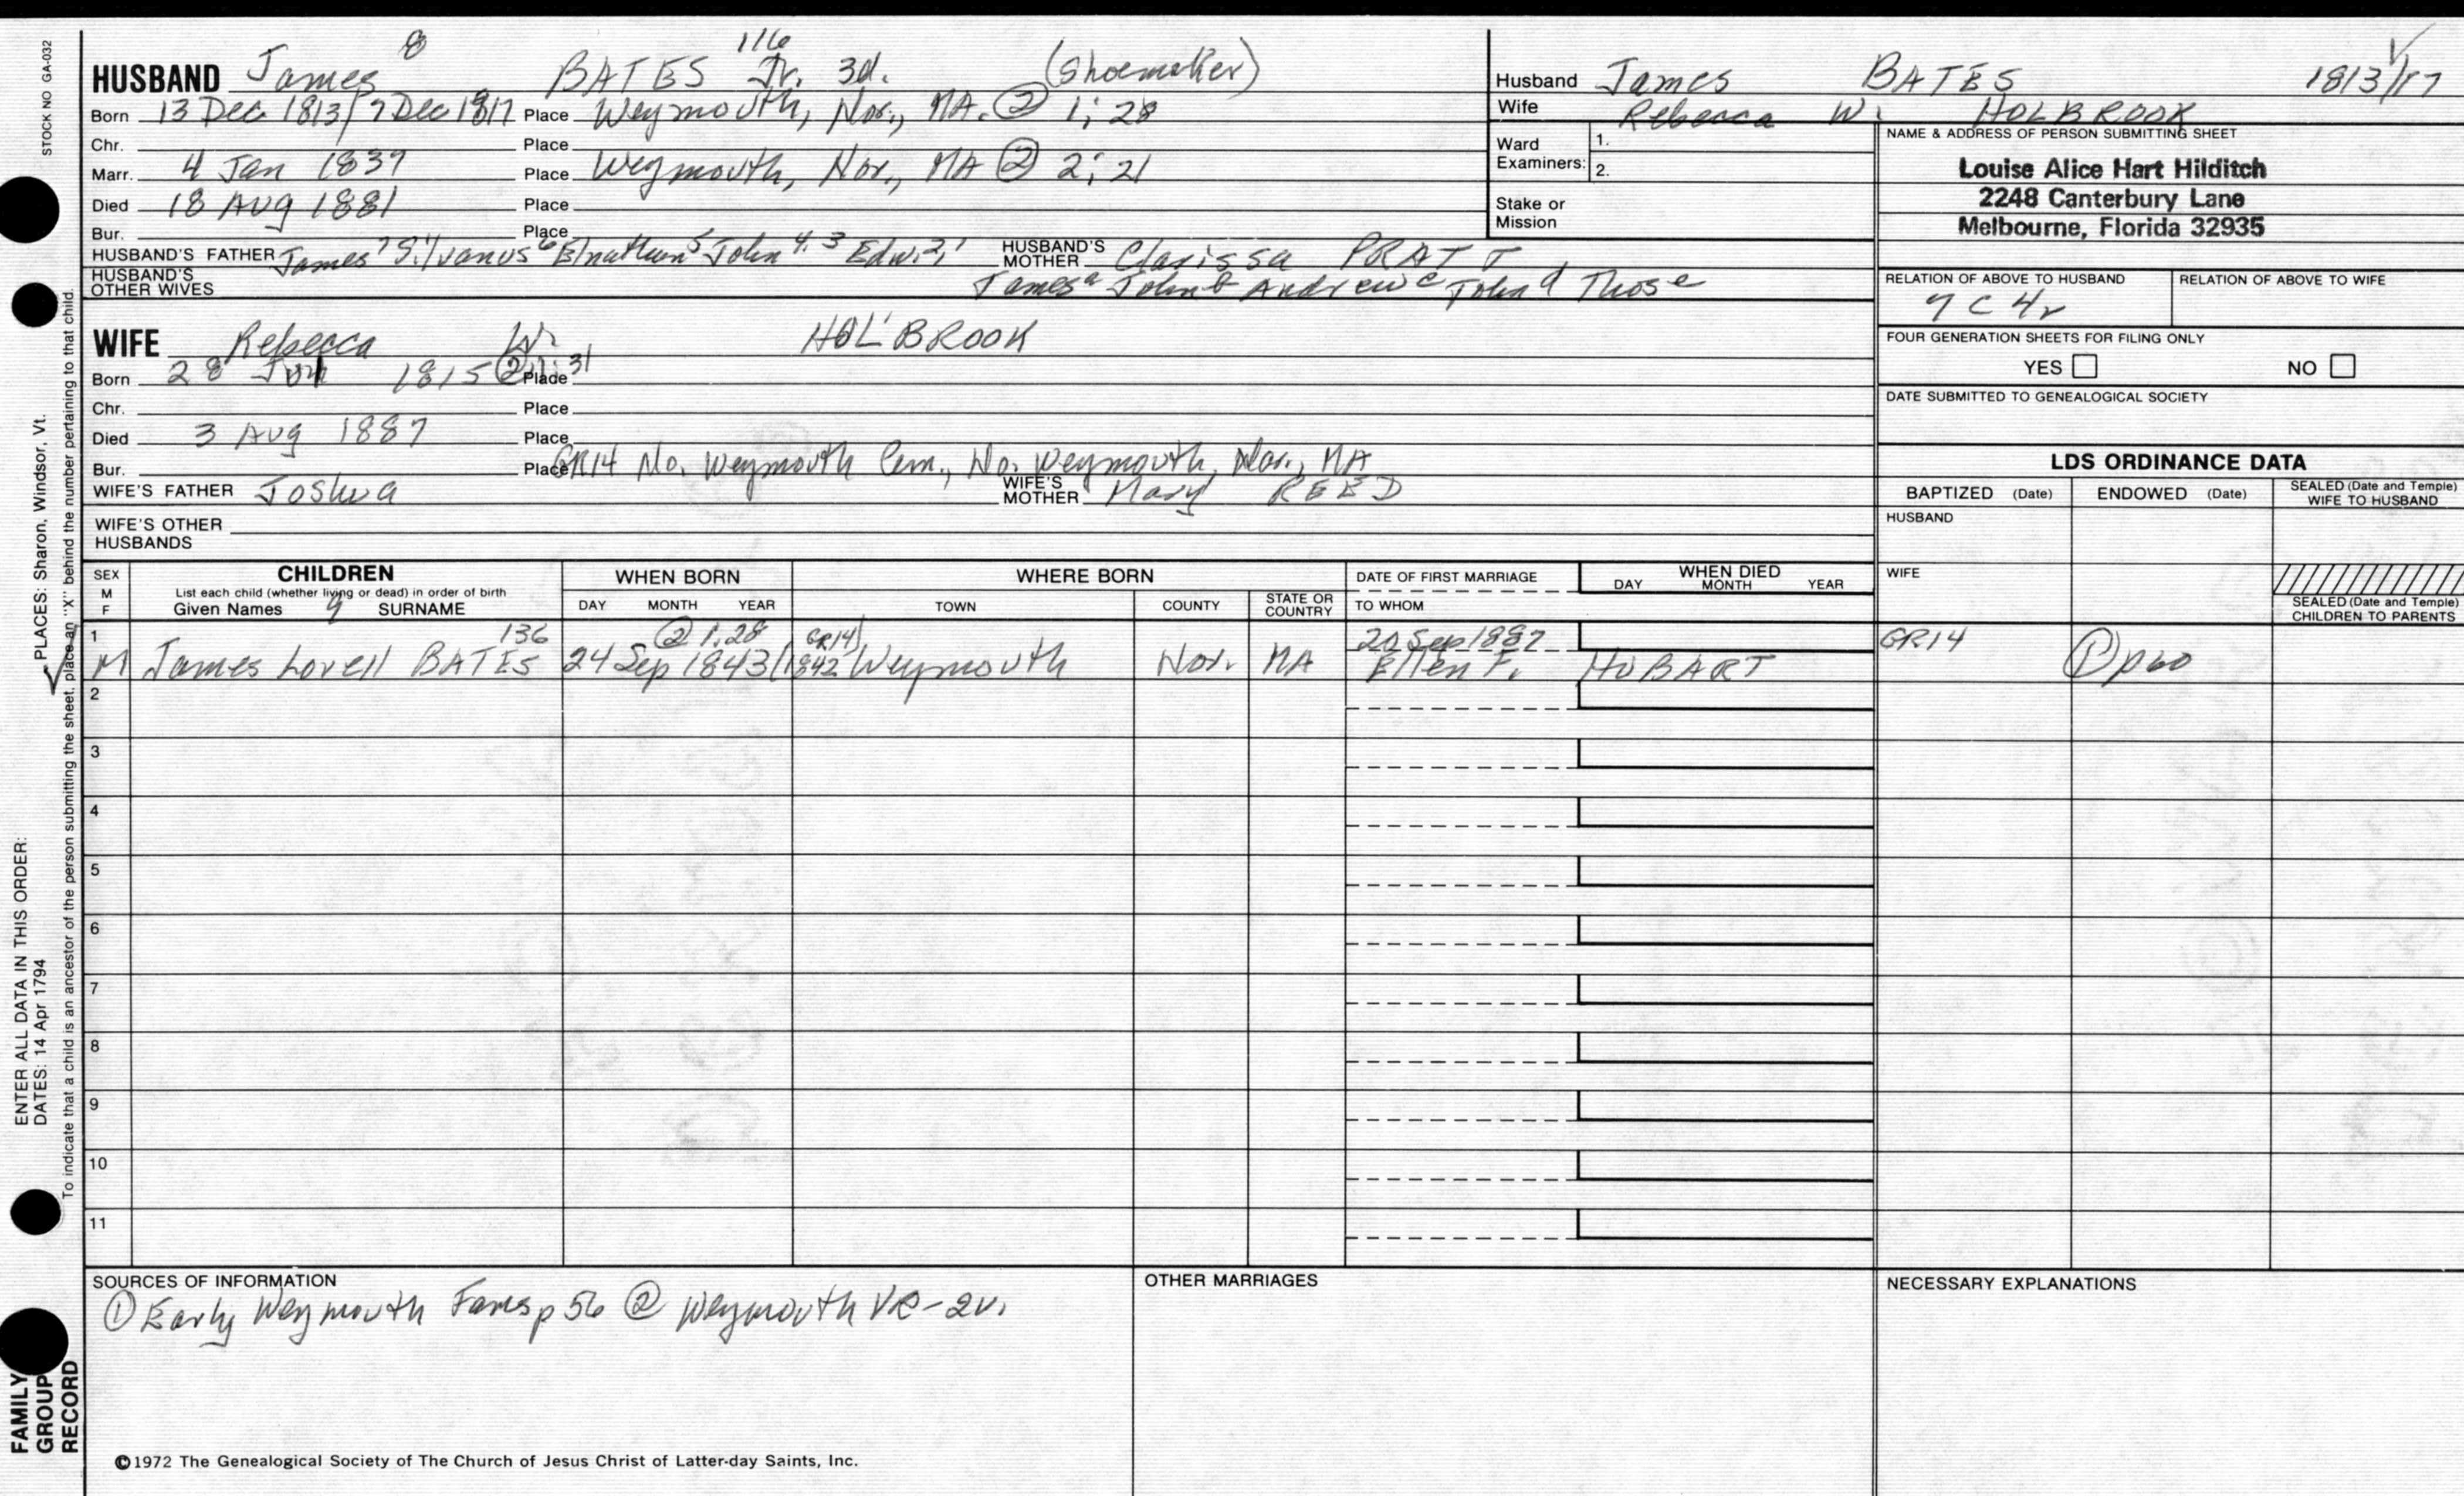 STOCK NO GA-032
116
HUSBAND James 8 BATES Jr. 3d. (Shoemaker)
Born 13 Dec 1813/7 Dec 1817 Place Weymouth, Nor., MA. ② 1; 28
Chr. Place
Marr. 4 Jan 1839 Place Weymouth, Nor., MA ② 2; 21
Died 18 Aug 1881 Place
Bur. Place
HUSBAND'S FATHER James 7 Silvanus 6 Elnathan 5 John 4. 3 Edw. 2, 1 HUSBAND'S MOTHER Clarissa PRATT
HUSBAND'S OTHER WIVES James a John b Andrew c John d Thos e
Husband James BATES 1813/17
Wife Rebecca W. HOLBROOK
Ward Examiners: 1.
2.
Stake or Mission
NAME & ADDRESS OF PERSON SUBMITTING SHEET
Louise Alice Hart Hilditch
2248 Canterbury Lane
Melbourne, Florida 32935
RELATION OF ABOVE TO HUSBAND RELATION OF ABOVE TO WIFE
7 C 4r
FOUR GENERATION SHEETS FOR FILING ONLY
YES NO
DATE SUBMITTED TO GENEALOGICAL SOCIETY
WIFE Rebecca W. HOLBROOK
Born 28 Jun 1815 ② Place 31
Chr. Place
Died 3 Aug 1887 Place
Bur. Place GR14 No. Weymouth Cem., No. Weymouth, Nor., MA
WIFE'S FATHER Joshua WIFE'S MOTHER Mary REED
WIFE'S OTHER HUSBANDS
LDS ORDINANCE DATA
BAPTIZED (Date) ENDOWED (Date) SEALED (Date and Temple) WIFE TO HUSBAND
HUSBAND
WIFE
SEALED (Date and Temple) CHILDREN TO PARENTS
SEX M F CHILDREN WHEN BORN WHERE BORN DATE OF FIRST MARRIAGE WHEN DIED
List each child (whether living or dead) in order of birth DAY MONTH YEAR
Given Names 9 SURNAME DAY MONTH YEAR TOWN COUNTY STATE OR COUNTRY TO WHOM
1 136 ② 1.28 GR14 20 Sep 1887 GR14
M James Lovell BATES 24 Sep 1843/1842 Weymouth Nor. MA Ellen F. HOBART ① p60
2
3
4
5
6
7
8
9
10
11
SOURCES OF INFORMATION OTHER MARRIAGES NECESSARY EXPLANATIONS
① Early Weymouth Fams p 56 ② Weymouth VR-2v.
©1972 The Genealogical Society of The Church of Jesus Christ of Latter-day Saints, Inc.
ENTER ALL DATA IN THIS ORDER:
DATES: 14 Apr 1794 PLACES: Sharon, Windsor, Vt.
To indicate that a child is an ancestor of the person submitting the sheet, place an "X" behind the number pertaining to that child.
FAMILY GROUP RECORD